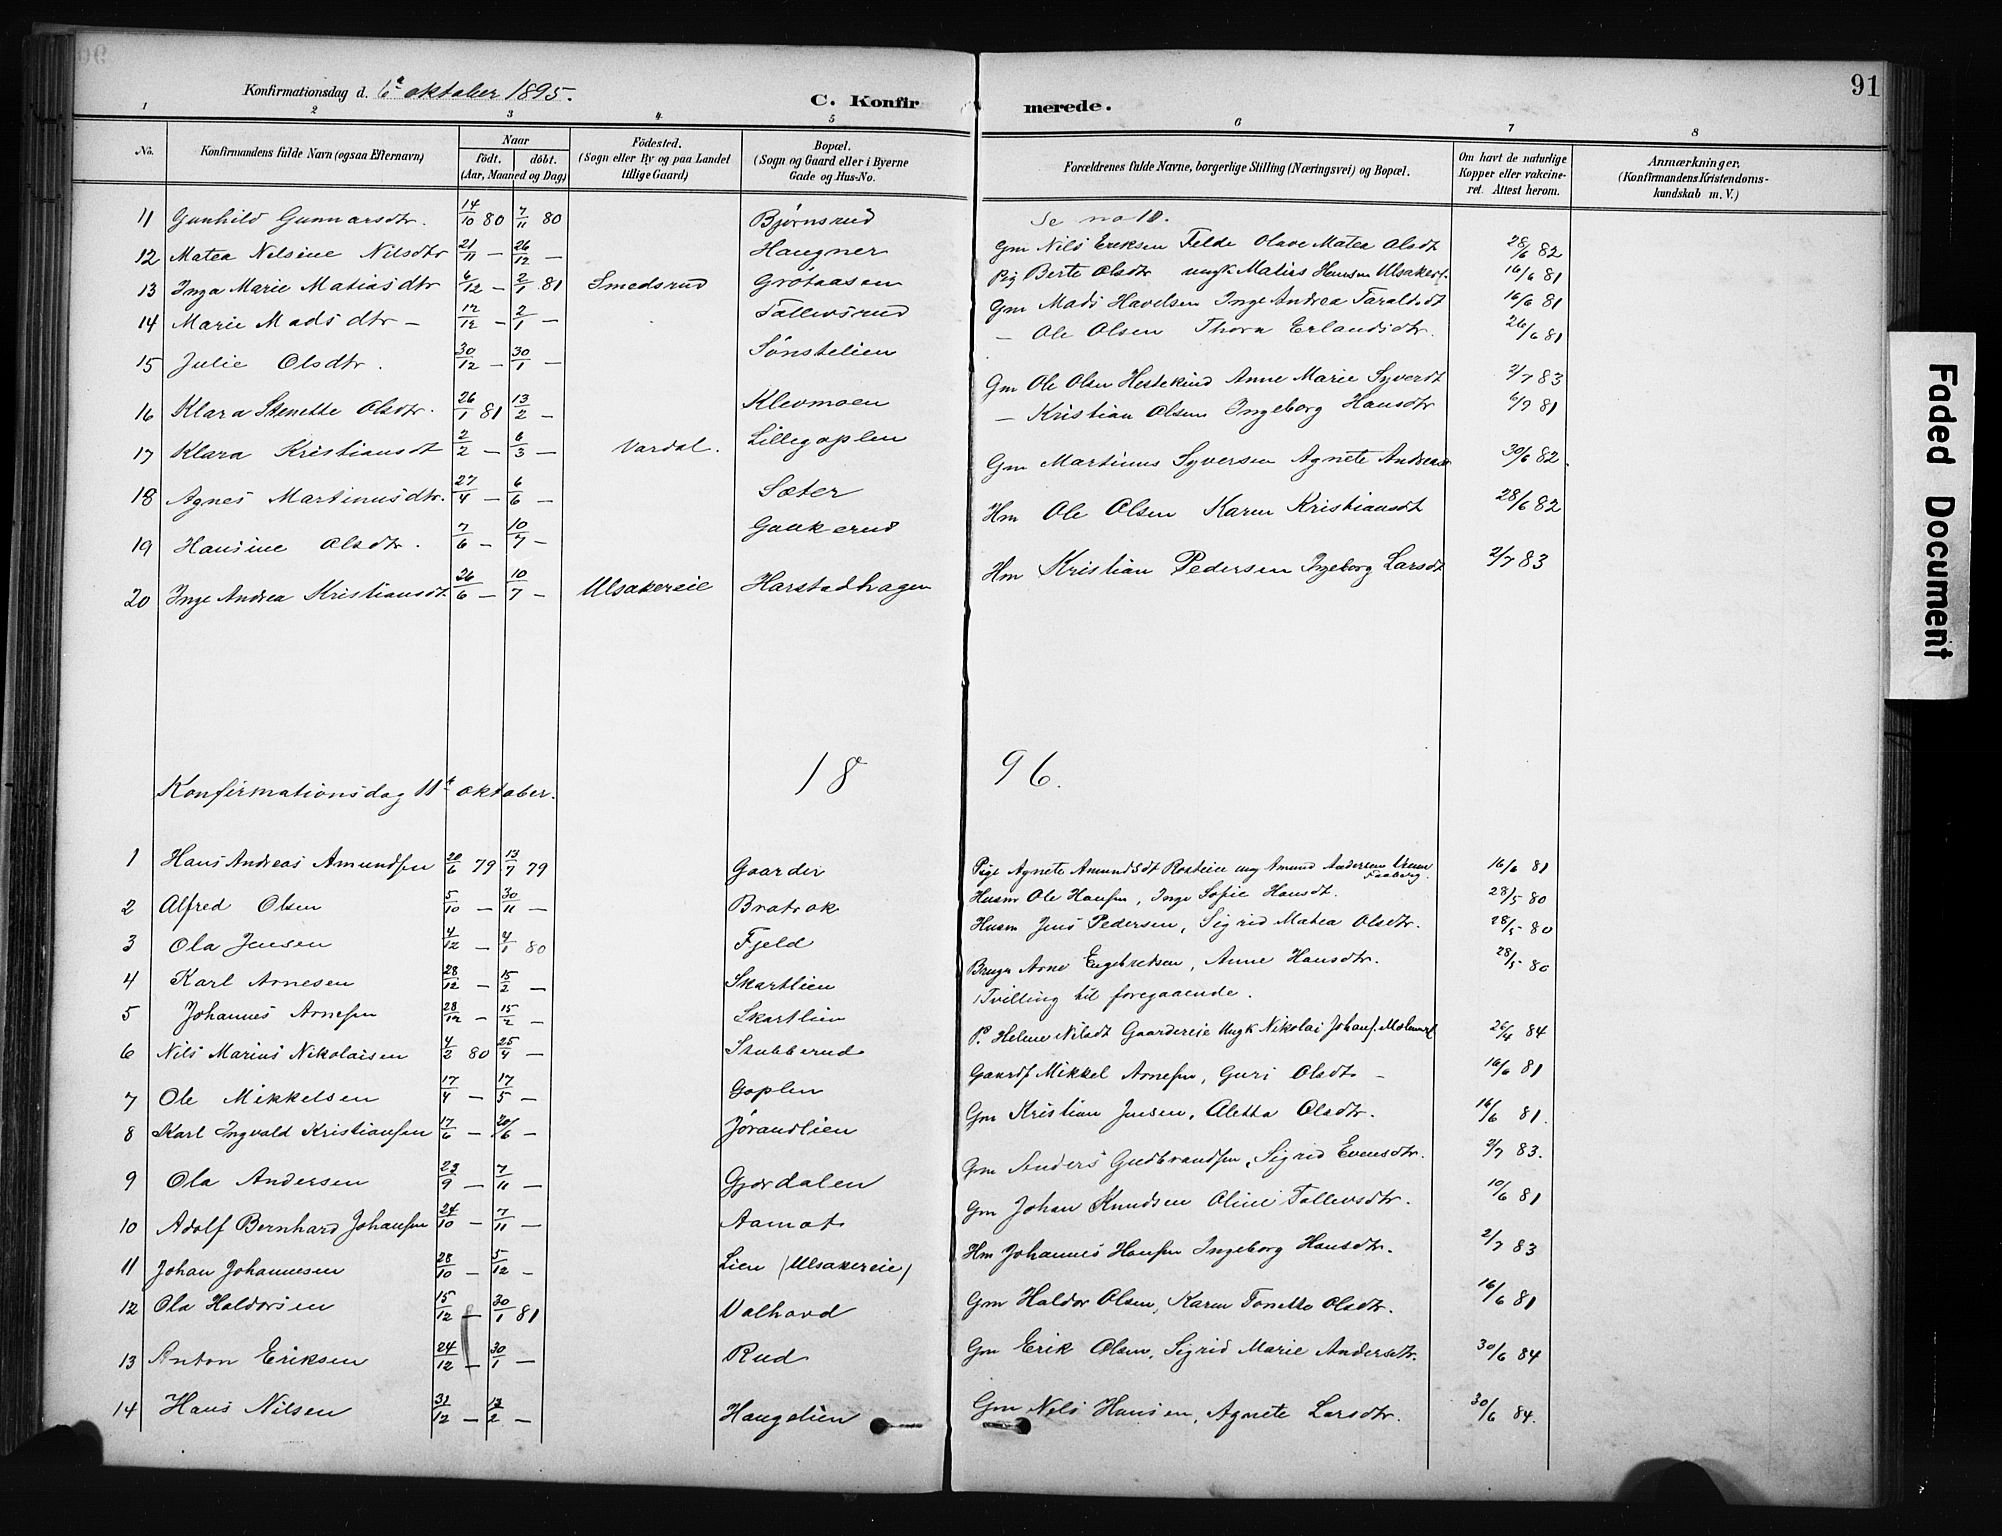 91
Konfirmationsdag d. 6te oktober 1895.
C. Konfirmerede.
1 2 3 4 5 6 7 8
No. Konfirmandens fulde Navn (ogsaa Efternavn) Naar født. døbt. (Aar, Maaned og Dag) Fødested. (Sogn eller By og paa Landet tillige Gaard) Bopæl. (Sogn og Gaard eller i Byerne Gade og Hus-No. Forældrenes fulde Navne, borgerlige Stilling (Næringsvei) og Bopæl. Om havt de naturlige Kopper eller vakcineret. Attest herom. Anmærkninger. (Konfirmandens Kristendomskundskab m. V.)
11 Gunhild Gunnarsdtr. 14/10 80 7/11 80 Bjørnsrud Se no 10.
12 Matea Nilsine Nilsdtr 21/11 — 26/12 — Haugner Gm Nils Eriksen Felde Olave Matea Olsdt 28/6 82
13 Inga Marie Matiasdtr 6/12 — 2/1 81 Smedsrud Grøtaasen Pig Berte Olsdtr ungk Matias Hansen Ulsakerf. 16/6 81
14 Marie Madsdtr — 12/12 — 2/1 — Tollevsrud Gm Mads Havelsen Inge Andrea Taraldsdt 16/6 81
15 Julie Olsdtr. 30/12 — 30/1 — Sønstelien — Ole Olsen Thora Erlandsdtr. 26/6 81
16 Klara Stenette Olsdtr. 26/1 81 13/2 — Klevmoen Gm Ole Olsen Hestekind Anne Marie Syverdt 2/7 83
17 Klara Kristiansdt 2/2 — 6/3 — Vardal. Lillegoplen — Kristian Olsen Ingeborg Hansdtr 6/7 81
18 Agnes Martinusdtr. 27/4 — 6/6 — Sæter Gm Martinus Syversen Agnete Andreasd 30/6 82.
19 Hansine Olsdtr. 7/6 — 10/7 — Gaukerud Hm Ole Olsen Karen Kristiansdt 28/6 82
20 Inge Andrea Kristiansdt. 26/6 — 10/7 — Ulsakereie Harstadhagen Hm Kristian Pedersen Ingeborg Larsdt 2/7 83
1896.
Konfirmationsdag 11te oktober.
1 Hans Andreas Amundsen 20/6 79 13/7 79 Gaarder Pige Agnete Amundsdt Rosteie ung Amund Andersen Faaberg. 16/6 81
2 Alfred Olsen 5/10 — 30/11 — Bratrok Husm Ole Hansen, Inge Sofie Hansdt. 28/5 80
3 Ola Jensen 4/12 — 4/1 80 Fjeld Husm Jens Pedersen, Sigrid Matea Olsdtr. 28/5 80
4 Karl Arnesen 28/12 — 15/2 — Skartlien Bruger Arne Engebretsen, Anne Hansdtr. 28/5 80
5 Johannes Arnesen 28/12 — 15/2 — Skartlien Tvilling til foregaaende.
6 Nils Marius Nikolaisen 4/2 80 25/4 — Stubberud P. Helene Nilsdt Gaardereie Ungk Nikolai Johans. 26/4 84
7 Ole Mikkelsen 17/4 — 17/5 — Goplen Gaardf Mikkel Arnesen, Guri Olsdtr — 16/6 81
8 Karl Ingvald Kristiansen 17/6 — 20/6 — Jørandlien Gm Kristian Jensen, Aletta Olsdtr. 16/6 81.
9 Ola Andersen 23/9 — 7/11 — Gjørdalen Gm Anders Gudbrandsen, Sigrid Evensdtr. 2/7 83.
10 Adolf Bernhard Johansen 24/10 — 7/11 — Aamot Gm Johan Knudsen Oline Tollevsdtr. 10/6 81
11 Johan Johannesen 28/10 — 5/12 — Lien (Ulsakereie) Hm Johannes Hansen Ingeborg Hansdtr. 2/7 83
12 Ola Haldorsen 15/12 — 30/1 81 Valhovd Gm Haldor Olsen, Karen Tonette Olsdtr. 16/6 81
13 Anton Eriksen 24/12 — 30/1 — Rud Gm Erik Olsen, Sigrid Marie Andersdtr. 30/6 84
14 Hans Nilsen 31/12 — 13/2 — Haugelien Gm Nels Hansen, Agnete Larsdtr. 30/6 84.
Faded Document